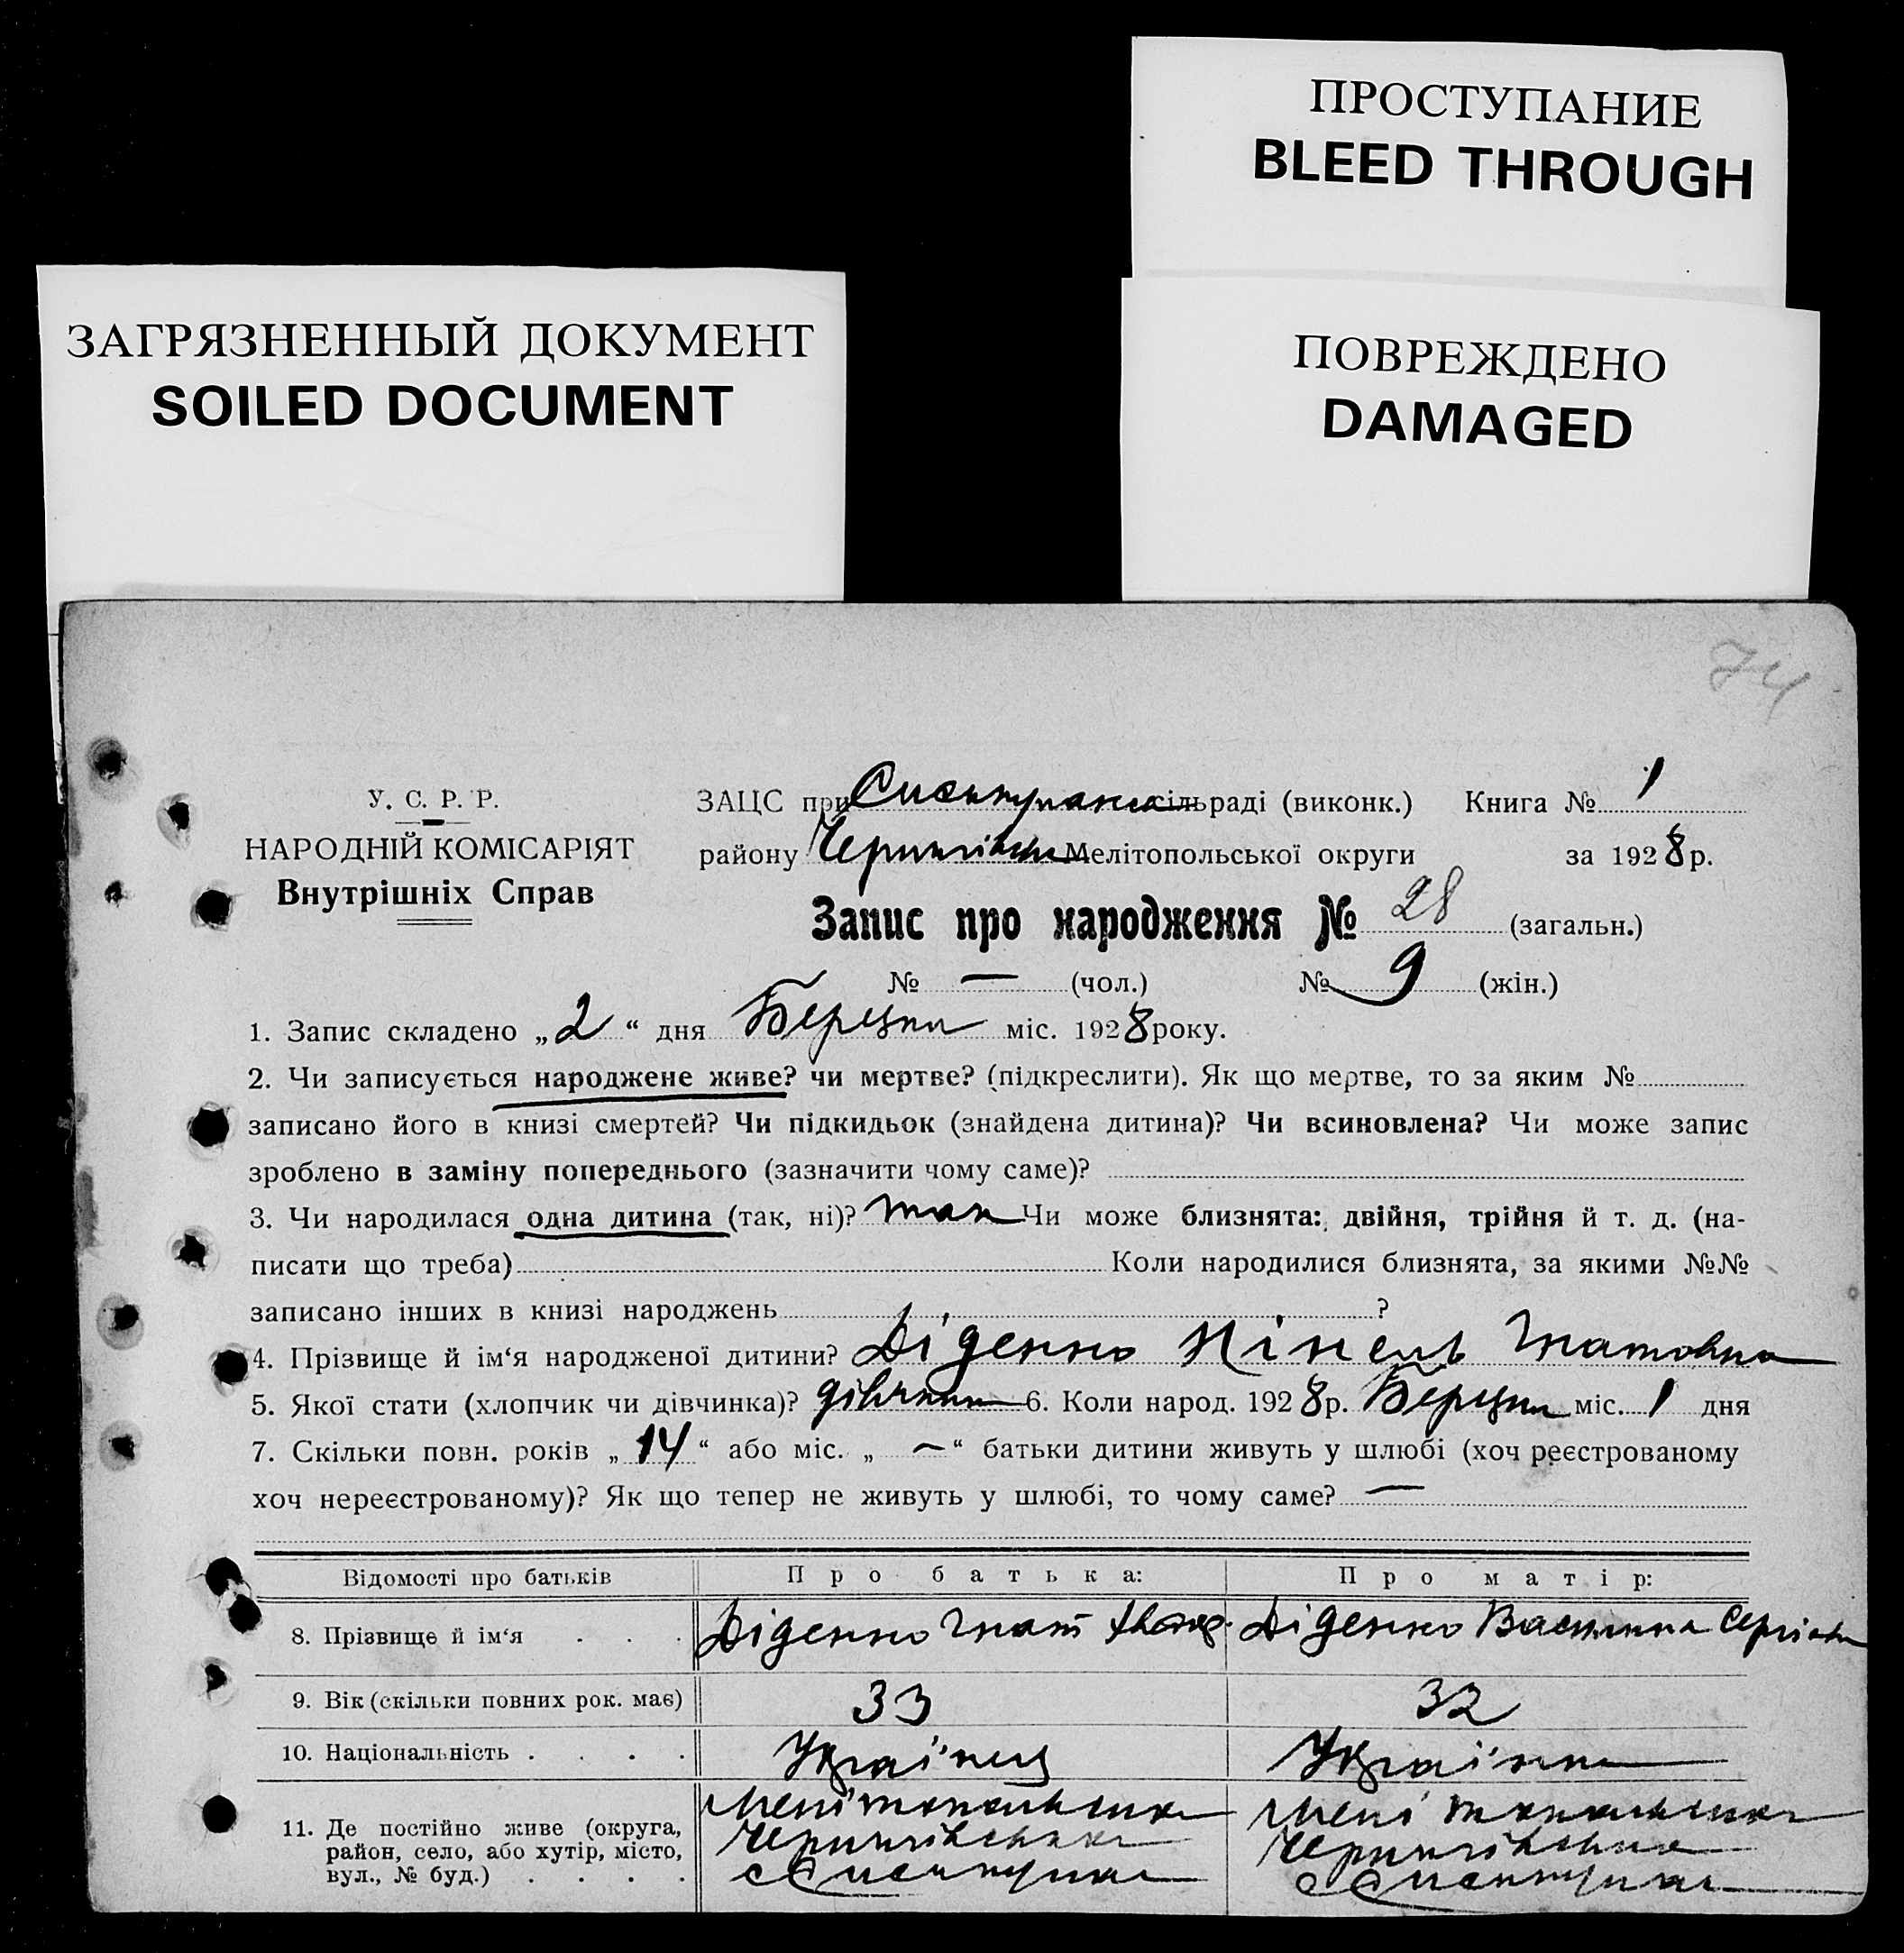 ПРОСТУПАНИЕ
BLEED THROUGH
ЗАГРЯЗНЕННЫЙ ДОКУМЕНТ
SOILED DOCUMENT
ПОВРЕЖДЕНО
DAMAGED
74
У. С. Р. Р.
НАРОДНІЙ КОМІСАРІЯТ
Внутрішніх Справ
ЗАЦС при сільраді (виконк.) Книга № 1
району Мелітопольської округи за 1928 р.
Запис про народження № 28 (загальн.)
№ — (чол.) № 9 (жін.)
1. Запис складено „2“ дня Березня міс. 1928 року.
2. Чи записується народжене живе? чи мертве? (підкреслити). Як що мертве, то за яким №
записано його в книзі смертей? Чи підкидьок (знайдена дитина)? Чи всиновлена? Чи може запис
зроблено в заміну попереднього (зазначити чому саме)?
3. Чи народилася одна дитина (так, ні)? так Чи може близнята: двійня, трійня й т. д. (на-
писати що треба) Коли народилися близнята, за якими №№
записано інших в книзі народжень ?
4. Прізвище й ім‘я народженої дитини? Діденко Нінель Гнатовна
5. Якої стати (хлопчик чи дівчинка)? дівчина 6. Коли народ. 1928 р. Березня міс. 1 дня
7. Скільки повн. років „14“ або міс. „—“ батьки дитини живуть у шлюбі (хоч реєстрованому
хоч нереєстрованому)? Як що тепер не живуть у шлюбі, то чому саме? —
Відомості про батьків Про батька: Про матір:
8. Прізвище й ім‘я . . . Діденко Гнат Діденко Василина
9. Вік (скільки повних рок. має) 33 32
10. Національність . . . . Українец Українка
11. Де постійно живе (округа,
район, село, або хутір, місто,
вул., № буд.) . . . .